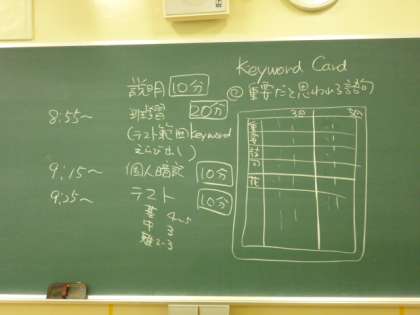 Keyword Card
説明 10分
① 重要だと思われる語句
8:55〜 班学習 20分
(テスト範囲keyword
えらび出し)
9:15〜 個人暗記 10分
9:25〜 テスト 10分
基 4~5
中 3
難 2~3
3点 3点
重要語句